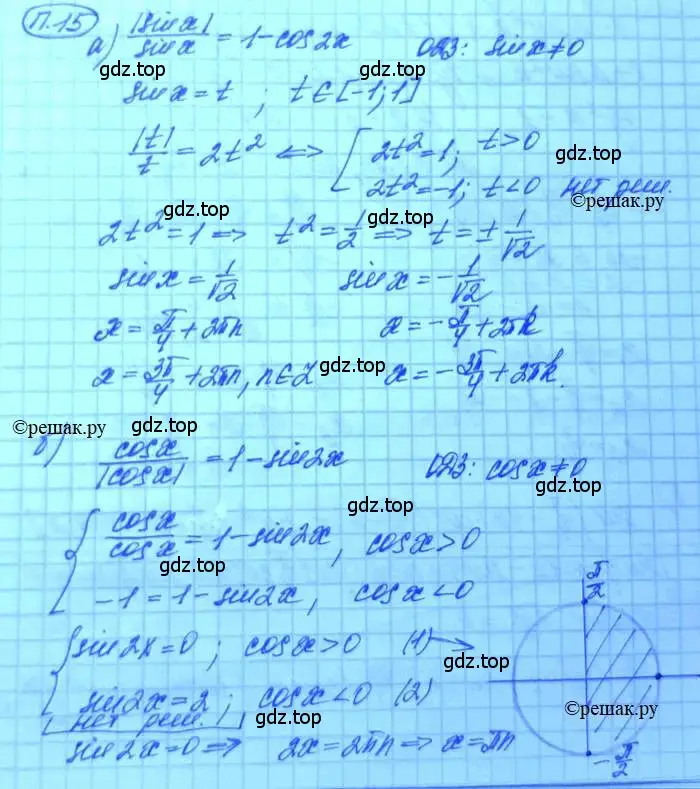 П.15
а) |sin x| / sin x = 1 - cos 2x ОДЗ: sin x ≠ 0
gdz.top gdz.top
sin x = t ; t ∈ [-1; 1]
gdz.top
|t| / t = 2t² ⟺ [ 2t² = 1; t > 0
2t² = -1; t < 0 нет реш.
gdz.top ©решак.ру
gdz.top gdz.top
2t² = 1 ⟹ t² = 1/2 ⟹ t = ± 1/√2
sin x = 1/√2 sin x = - 1/√2
gdz.top gdz.top
x = π/4 + 2πn x = - π/4 + 2πk
x = 3π/4 + 2πn, n ∈ Z x = - 3π/4 + 2πk.
©решак.ру gdz.top
б) cos x / |cos x| = 1 - sin 2x ОДЗ: cos x ≠ 0
gdz.top
gdz.top
{ cos x / cos x = 1 - sin 2x, cos x > 0
gdz.top
-1 = 1 - sin 2x, cos x < 0
π/2
gdz.top
{ sin 2x = 0 ; cos x > 0 (1)
gdz.top
sin 2x = 2 ; cos x < 0 (2)
нет реш.
gdz.top ©решак.ру
sin 2x = 0 ⟹ 2x = 2πn ⟹ x = πn
gdz.top
- π/2